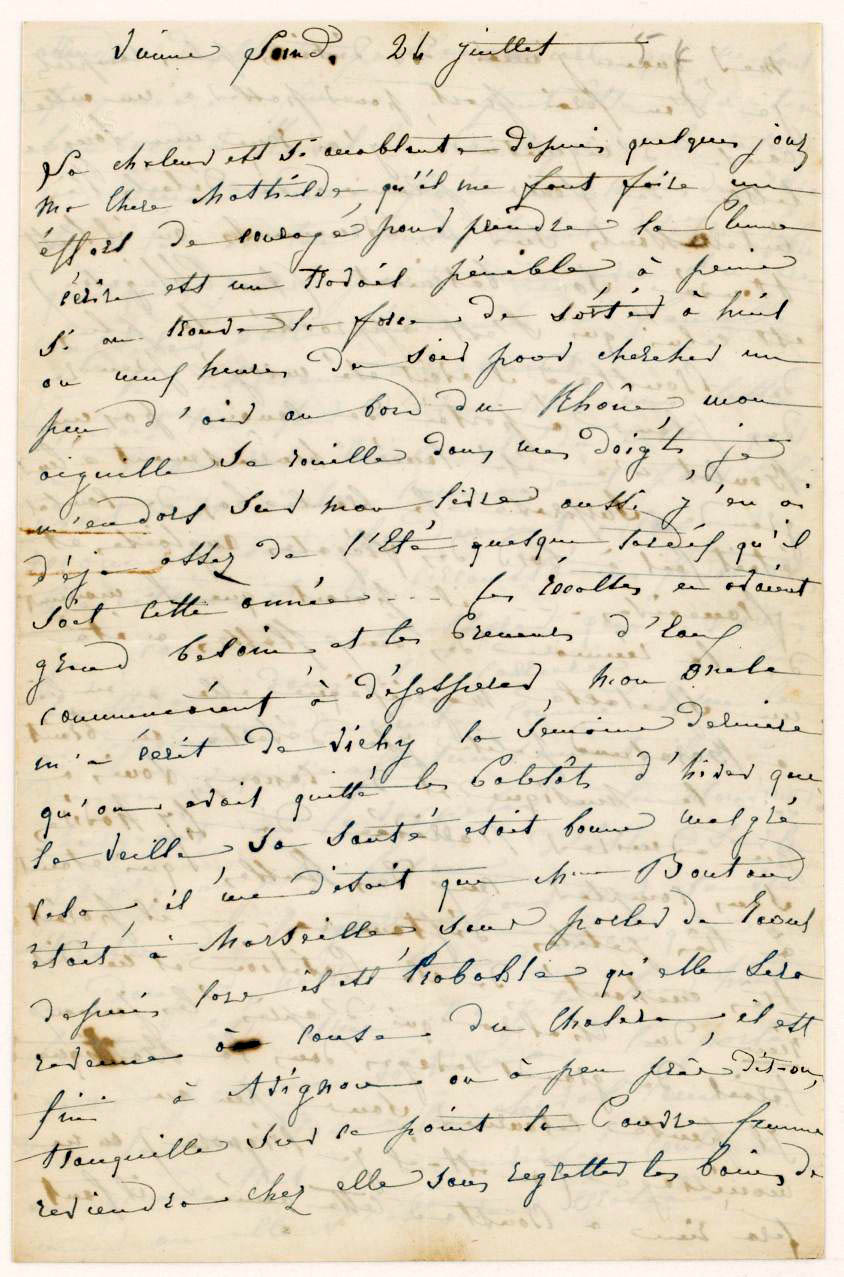 Vienne Lundi 24 juillet
La chaleur est si accablante depuis quelques jours
ma chere Mathilde, qu'il me faut faire un
éffort de courage pour prendre la Plume
écrire est un travail pénible à peine
si on trouve la force de sortir à huit
ou neuf heures du soir pour chercher un
peu d'air au bord du Rhône, mon
aiguille se rouille dans mes doigts, je
m'endors sur mon livre aussi j'en ai
déja assez de l'Eté quelque tardif qu'il
soit cette année ... les récoltes en avaient
grand besoin et les Preneurs d'eaux
commencaient à désesperer, mon oncle
m'a écrit de Vichy la semaine derniere
qu'on avait quitté les Paletots d'hiver que
la veille sa santé etait bonne malgré
cela, il me disait que Mme Boutaud
était à Marseille, sans parler de
depuis lors il est Probable qu'elle sera
revenue à cause du Choléra, il est
fini à Avignon ou à peu près, dit-on,
tranquille sur ce point la Pauvre femme
reviendra chez elle sans regretter les bains de